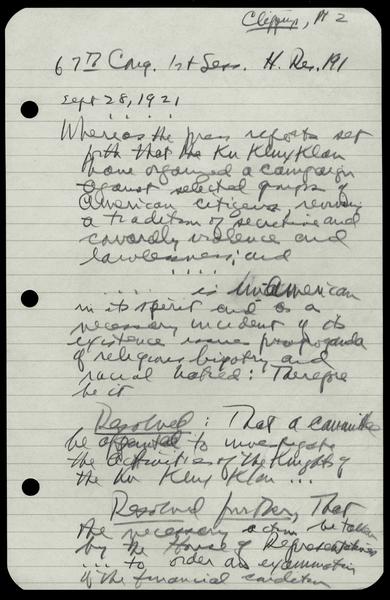 Clippings, Pt 2
67th Cong. 1st Sess. H. Res. 191
Sept 28, 1921
. . . . .
Whereas the press reports set
forth that the Ku Klux Klan
have organized a campaign
against selected groups of
American citizens, reviving
a tradition of secretive and
cowardly violence and
lawlessness; and
. . . .
. . . . . is UnAmerican
in its spirit and as a
necessary incident of its
existence issues propaganda
of religious bigotry and
racial hatred: Therefore
be it
Resolved: That a committee
be appointed to investigate
the activities of the Knights of
the Ku Klux Klan ...
Resolved further, That
the necessary action be taken
by the House of Representatives
.... to order an examination
of the financial condition